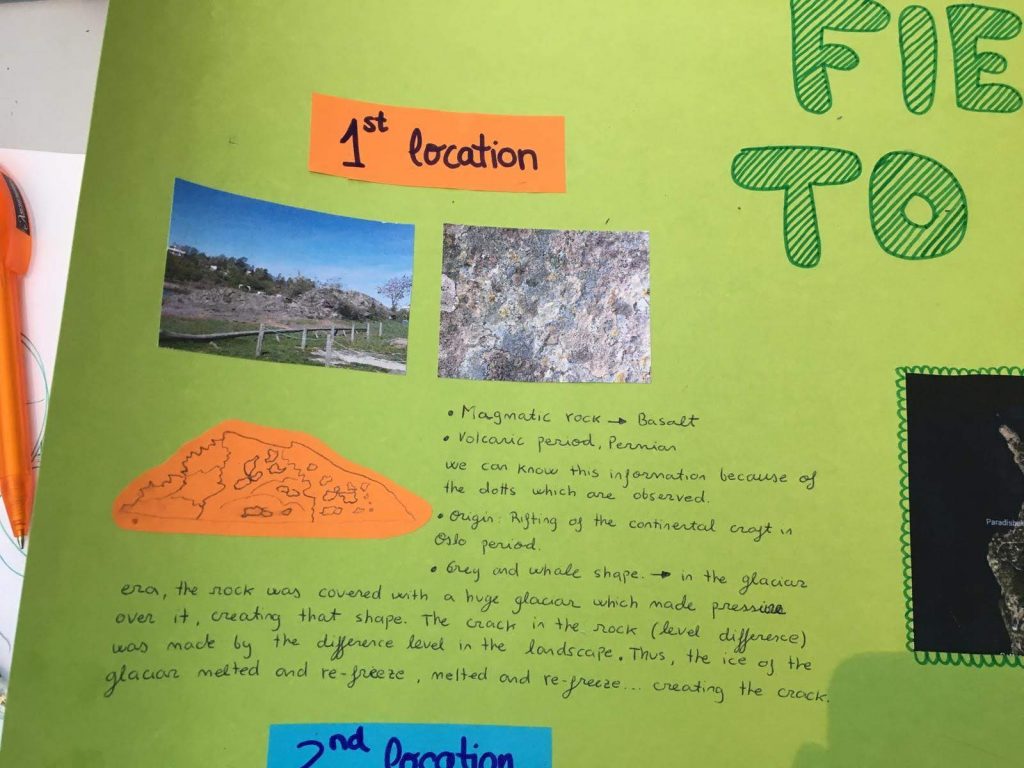 FIE
TO
1st location
• Magmatic rock → Basalt
• Volcanic period, Permian
we can know this information because of
the dotts which are observed.
• Origin: Rifting of the continental craft in
Oslo period.
• Grey and whale shape. → in the glaciar
era, the rock was covered with a huge glaciar which made pressure
over it, creating that shape. The crack in the rock (level difference)
was made by the difference level in the landscape. Thus, the ice of the
glaciar melted and re-freeze, melted and re-freeze... creating the crack.
2nd location